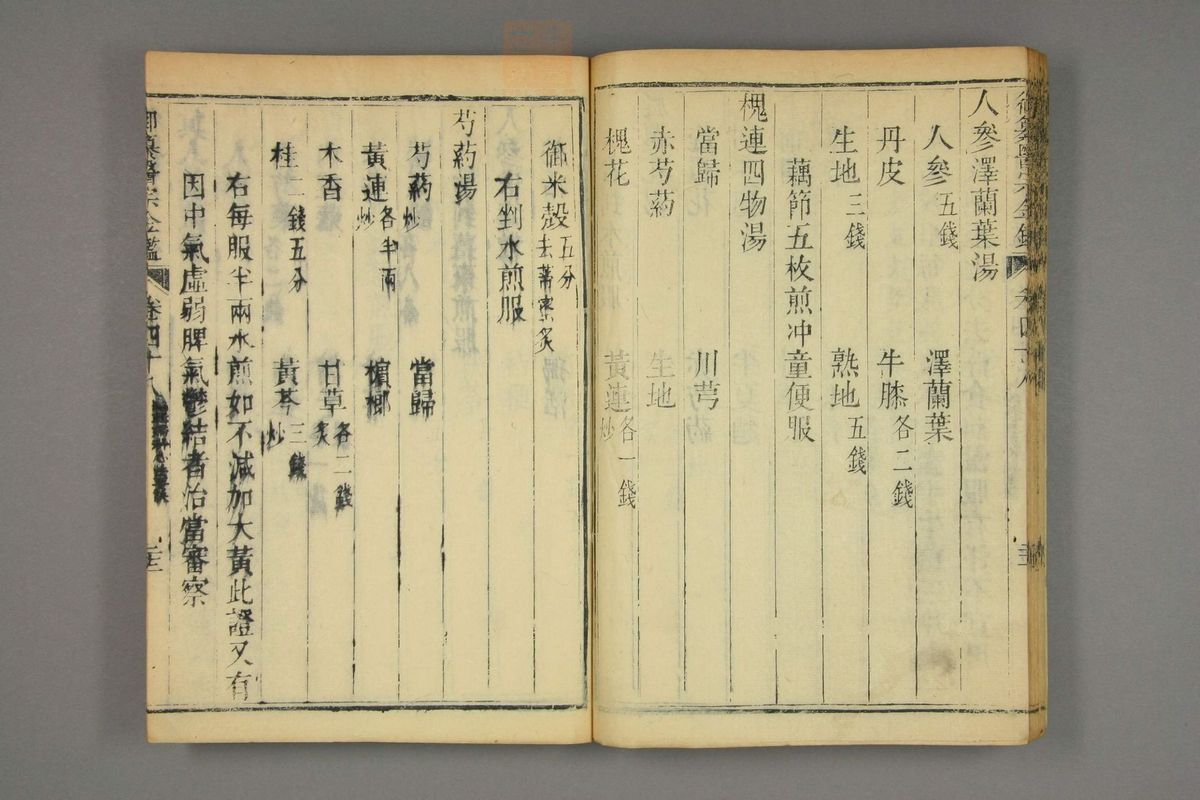 人參澤蘭葉湯
人參五錢　澤蘭葉
丹皮　牛膝各二錢
生地三錢　熟地五錢
藕節五枚煎冲童便服
槐連四物湯
當歸　川芎
赤芍藥　生地
槐花　黃連炒各一錢
御米殼去蒂蜜炙五分
右剉水煎服
芍藥湯
芍藥炒　當歸
黃連炒各半兩　檳榔
木香　甘草炙各二錢
桂二錢五分　黃芩炒三錢
右每服半兩水煎如不減加大黃此證又有
因中氣虛弱脾氣鬱結者治當審察
御纂醫宗金鑑　卷四十八